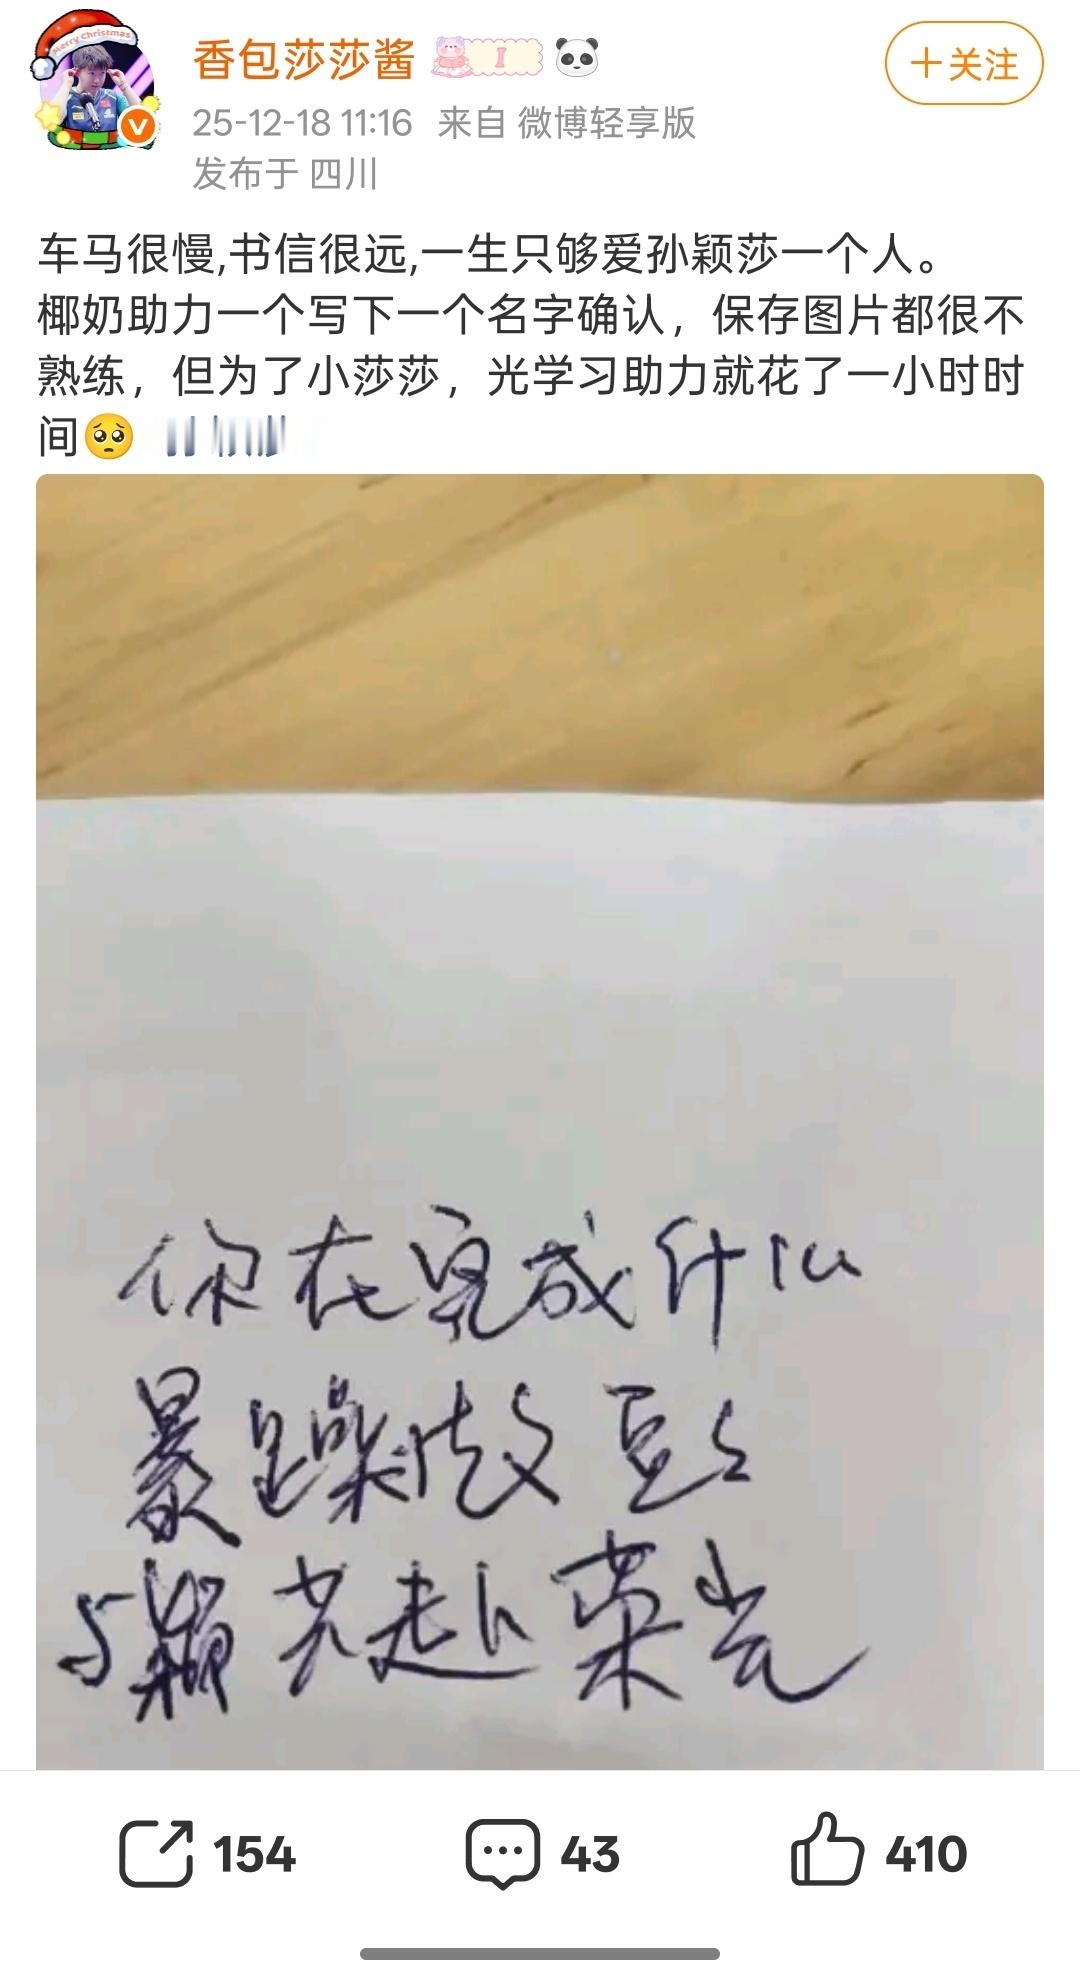 Merry Christmas
香包莎莎酱
I
+关注
25-12-18 11:16 来自 微博轻享版
发布于 四川
车马很慢,书信很远,一生只够爱孙颖莎一个人。
椰奶助力一个写下一个名字确认，保存图片都很不
熟练，但为了小莎莎，光学习助力就花了一小时时
间🥺
你在完成什么
暴躁做豆豆
与颖共赴荣光
154
43
410